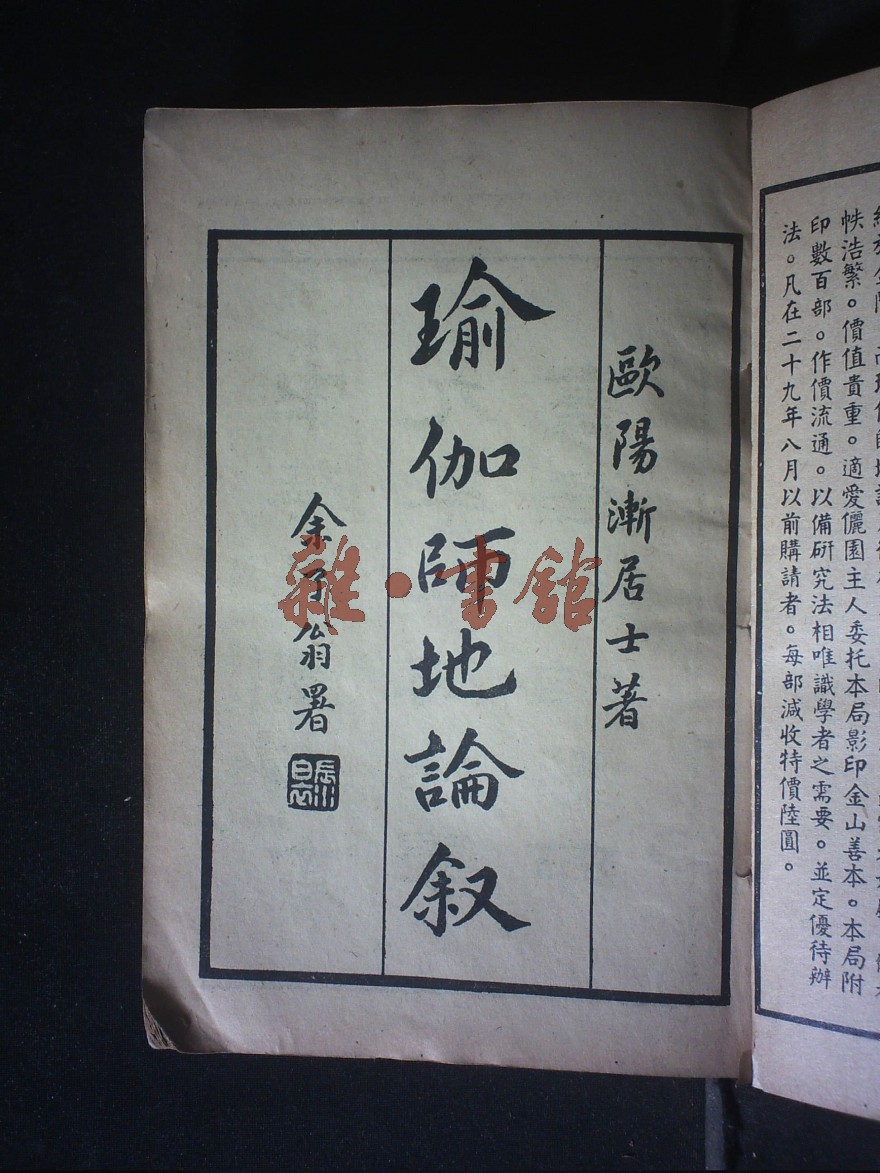 帙浩繁。價值貴重。適愛儷園主人委托本局影印金山善本。本局附
印數百部。作價流通。以備研究法相唯識學者之需要。並定優待辦
法。凡在二十九年八月以前購請者。每部減收特價陸圓。
歐陽漸居士著
瑜伽師地論叙
余了翁署
雜·書館